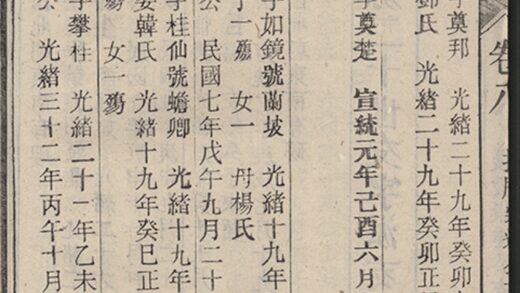 卷八
字奠邦 光緒二十九年癸卯
鄧氏 光緒二十九年癸卯正
字奠楚 宣統元年己酉六月
字如鏡號蘭坡 光緒十九年
丁一殤 女一 丹楊氏
公 民國七年戊午九月二十
字桂仙號蟾卿 光緒十九年
娶韓氏 光緒十九年癸巳正
殤 女一殤
字攀桂 光緒二十一年乙未
公 光緒三十二年丙午十月